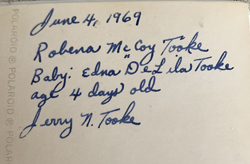 June 4, 1969
Robena McCoy Tooke
Baby: Edna "DeLila Tooke
age 4 days old
Jerry N. Tooke
POLAROID ® POLAROID ® POLAR